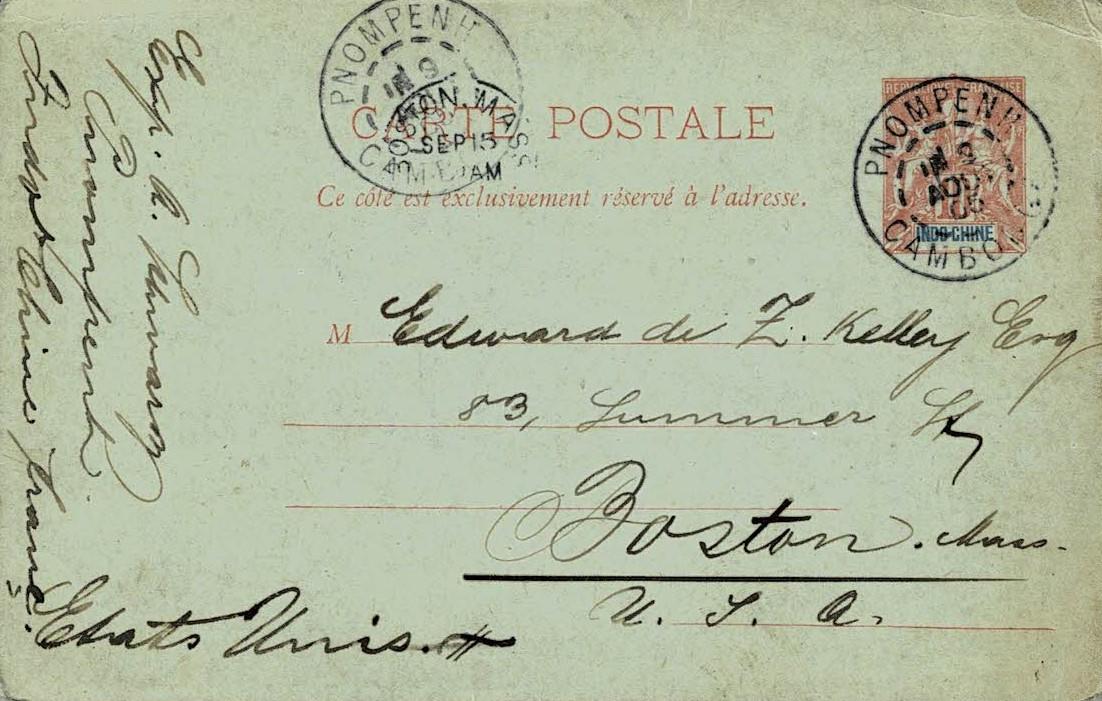 PNOMPENH
9
CAMB
BOSTON. MASS.
SEP 15
AM
CARTE POSTALE
Ce côté est exclusivement réservé à l'adresse.
RÉPUBLIQUE FRANÇAISE
INDO-CHINE
PNOMPENH
9
AOU
05
CAMBO
M Edward de Z. Kelley Esq
83, Summer St,
Boston. Mass.
U. S. A.
Etats Unis.
Exp. A.
Indo Chine